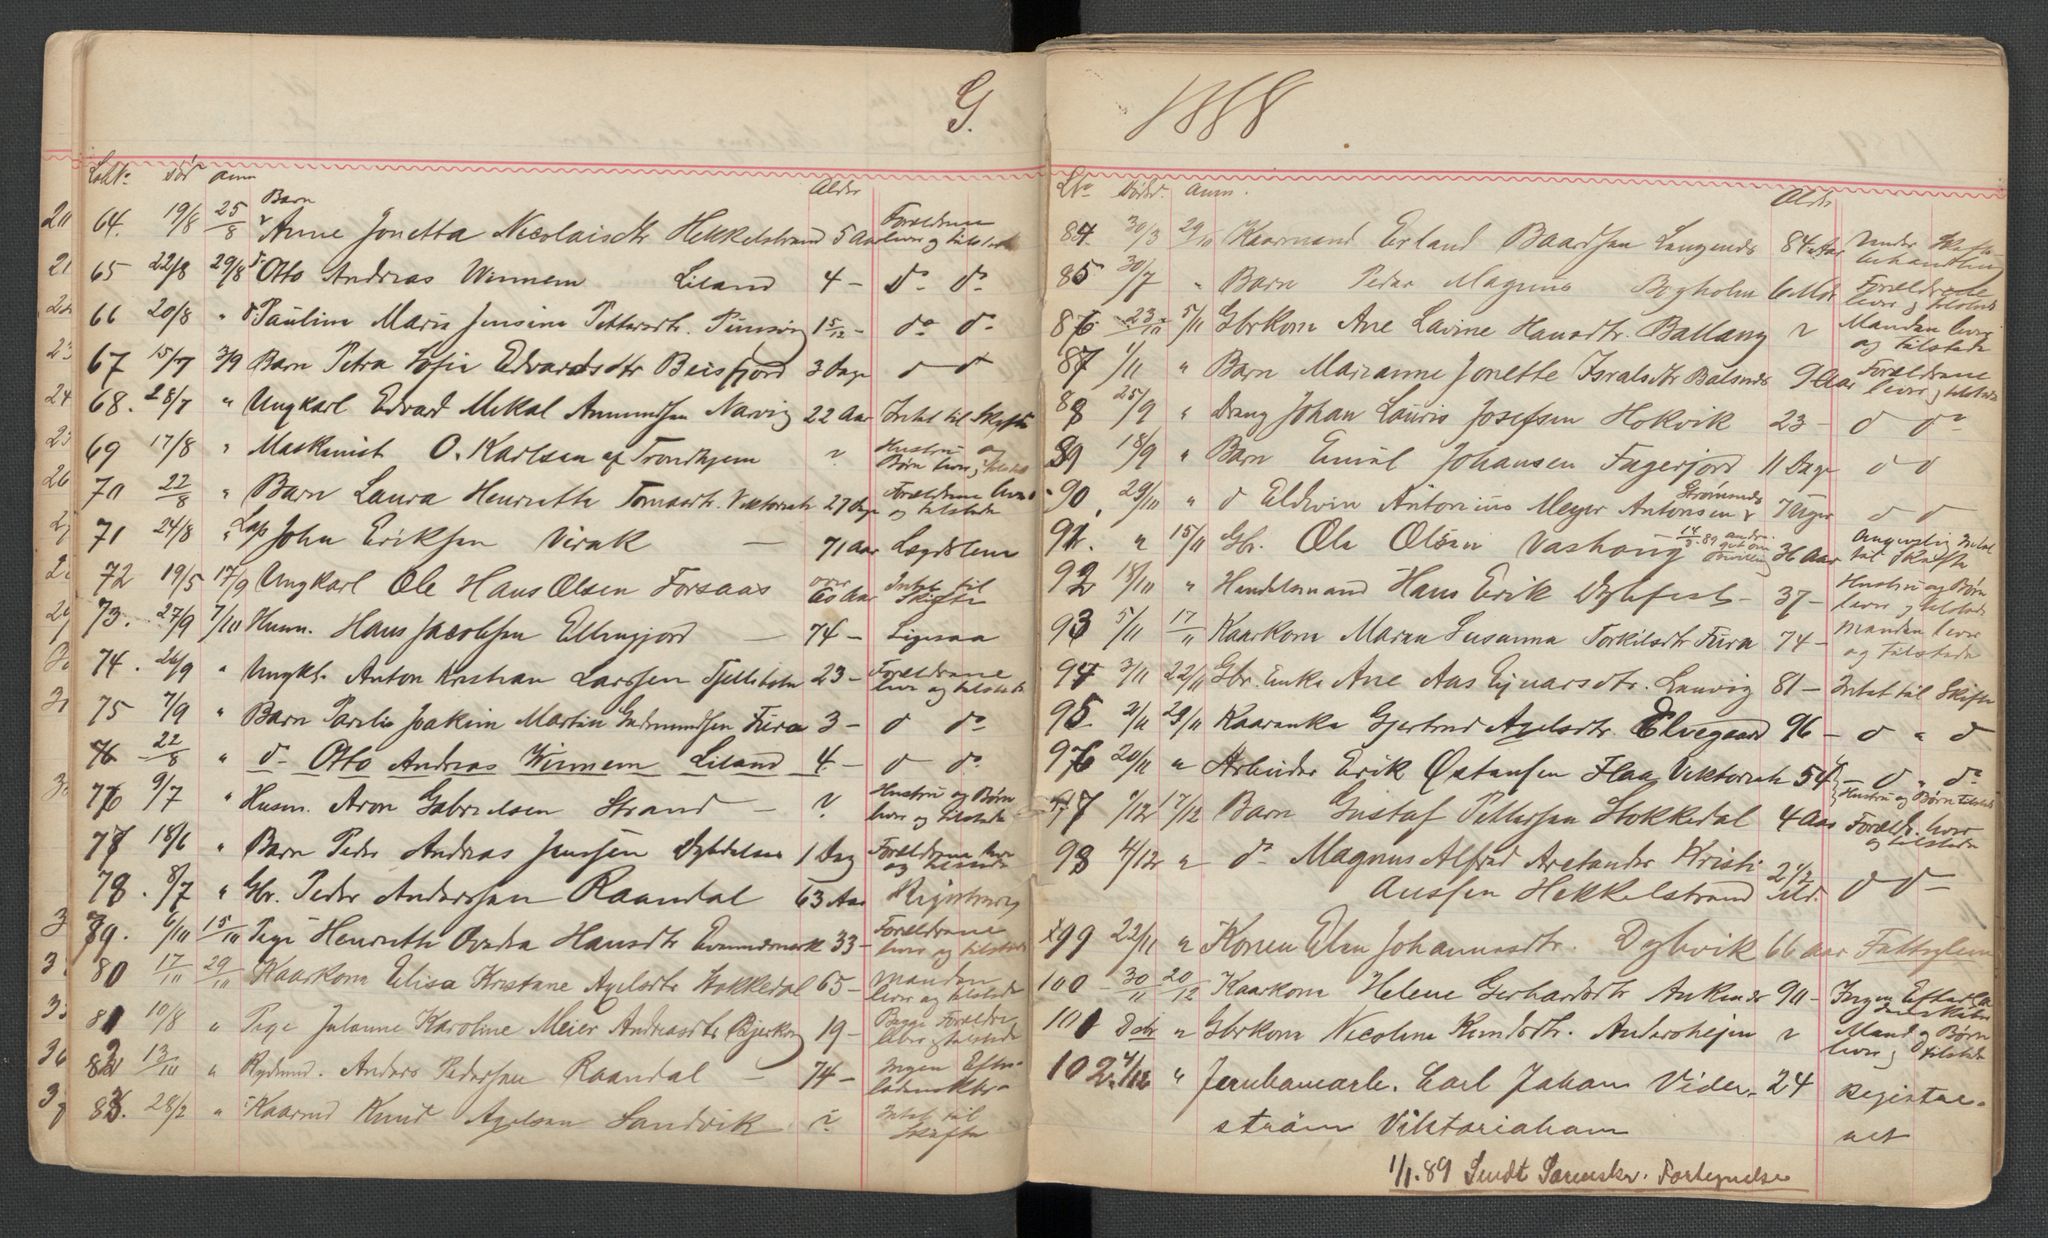 G.
LøbNo død anm Alder
64. 19/8 25/8 Barn Anne Jonetta Nicolaisdtr Hekkelstrand 5 Aar Forældrene lever og tilstede
65 22/8 29/8 Otto Andreas Winnem Liland 4 – do do
66 20/8 " Pauline Marie Jensine Pettersdtr. 15/12 – do do
67 15/7 3/9 Barn Petra Sofie Edvardsdtr Beisfjord 3 Dage d d
68. 28/7 " Ungkarl Edvard Mekal Amundsen Narvig 22 Aar Intet til Skifte
69 17/8 " Maskinist O. Karlsen af Trondhjem ? Hustru og Børn lever, tilstede
70 22/8 " Barn Laura Henriette Tomasdtr. Viktoriah 27 Dage Forældrene lever og tilstede
71 24/8 " Lap John Eriksen Virak — 71 Aar Lægdslem
72 19/5 17/9 Ungkarl Ole Hans Olsen Forsaas over 60 Aar Intet til Skifte
73. 27/9 7/10 Husm. Hans Jacobsen Elvegjord — 74 – Ligesaa
74. 26/9 " Ungkl. Anton Kristian Larssen Fjeldsaa 23 – Forældrene lever og tilstede
75 7/9 " Barn Joakim Martin Gudmundsen Fura 3 – d do
76 22/8 " d – Otto Andreas Winnem Liland 4 – d do
76 9/7 " Husm. Aron Gabrielsen Strand – ? Hustru og Børn lever og tilstede
77 18/6 " Barn Peder Andreas Jenssen 1 Dag Forældrene lever og tilstede
78. 8/7 " Gbr. Peder Anderssen Raandal 63 Aar
79. 6/10 15/10 Pige Henriette Ovedia Hansdtr Evenesmark 33 – Forældrene lever og tilstede
80 17/10 29/10 Kaarkone Elisa Kristane Axelsdtr Stokkedal 65 – Manden lever og tilstede
81 10/8 " Pige Julianne Karoline Meier Andreasdtr Bjerkvig 19 – Begge Forældre lever, tilstede
82 13/10 " Anders Pedersen Raandal — 74 – Ingen Efterladenskber
83. 28/2 " Kaarmd Knud Axelsen Sandvik ? Intet til Skifte
1888
LNo Døds. anm. Alder
84. 30/3 29/10 Kaarmand Erland Baardsen Langenes 84 Aar Under Skiftebehandling
85 30/7 " Barn Peder Magnus Bogholm 6 Mdr Forældrene lever og tilstede
86 23/10 5/11 Gbrkone Ane Lavine Hansdtr. Ballang ? Manden lever og tilstede
87 1/11 " Barn Marianne Jonette Israelsdtr Balsnes 9 Aar Forældrene lever, tilstede
88 25/9 " Dreng Johan Lauris Josefsen Hokvik 23 – d do
89 18/9 " Barn Emil Johansen Fagerjord 11 Dage d d
90. 29/10 " d Eldvin Antonius Meyer Antonsen Strømsnes 7 Uger d d
91. " 15/11 Gbr. Ole Olsen Vashaug 36 Aar Angivelig Intet til Skifte
92 18/10 " Handelsmand Hans Erik Dybfest – 37 – Hustru og Børn lever og tilstede
93 5/11 17/11 Kaarkone Maren Susanna Torkilsdtr Fura 74 – Manden lever og tilstede
94 3/11 22/11 Gbr. Enke Ane Aas Ejnarsdtr. Lanvig 81 – Intet til Skifte
95. 2/11 29/11 Kaarenke Gjertrud Axelsdtr. Elvegaard 96 – d " d
96 20/11 " Arbeider Erik Østensen Flaa Viktoriah 54 – d " do Hustru og Børn tilstede
97 9/12 17/12 Barn Gustaf Pettersen Stokkedal 4 Aar Forældr. lever og tilstede
98 4/12 " do Magnus Alfred Arelander Kristiansen Hekkelstrand 2 1/2 d do
x99 22/11 " Konen Elen Johannesdtr. Dybvik 66 aar Fattiglem
100 – 30/11 20/12 Kaarkone Helene Gerhardsdtr Ankenes 90 – Ingen Efterladenskaber
101 Dcbr " Gbrkone Nicoline Knudsdtr. Andershejen ? Mand og Børn lever og tilstede
102. 4/12 " Jernbanearb. Carl Johan Vider- 24 Registre-
ström Viktoriaham ret
1/1.89 Sendt Sorenskr. Fortegnelse